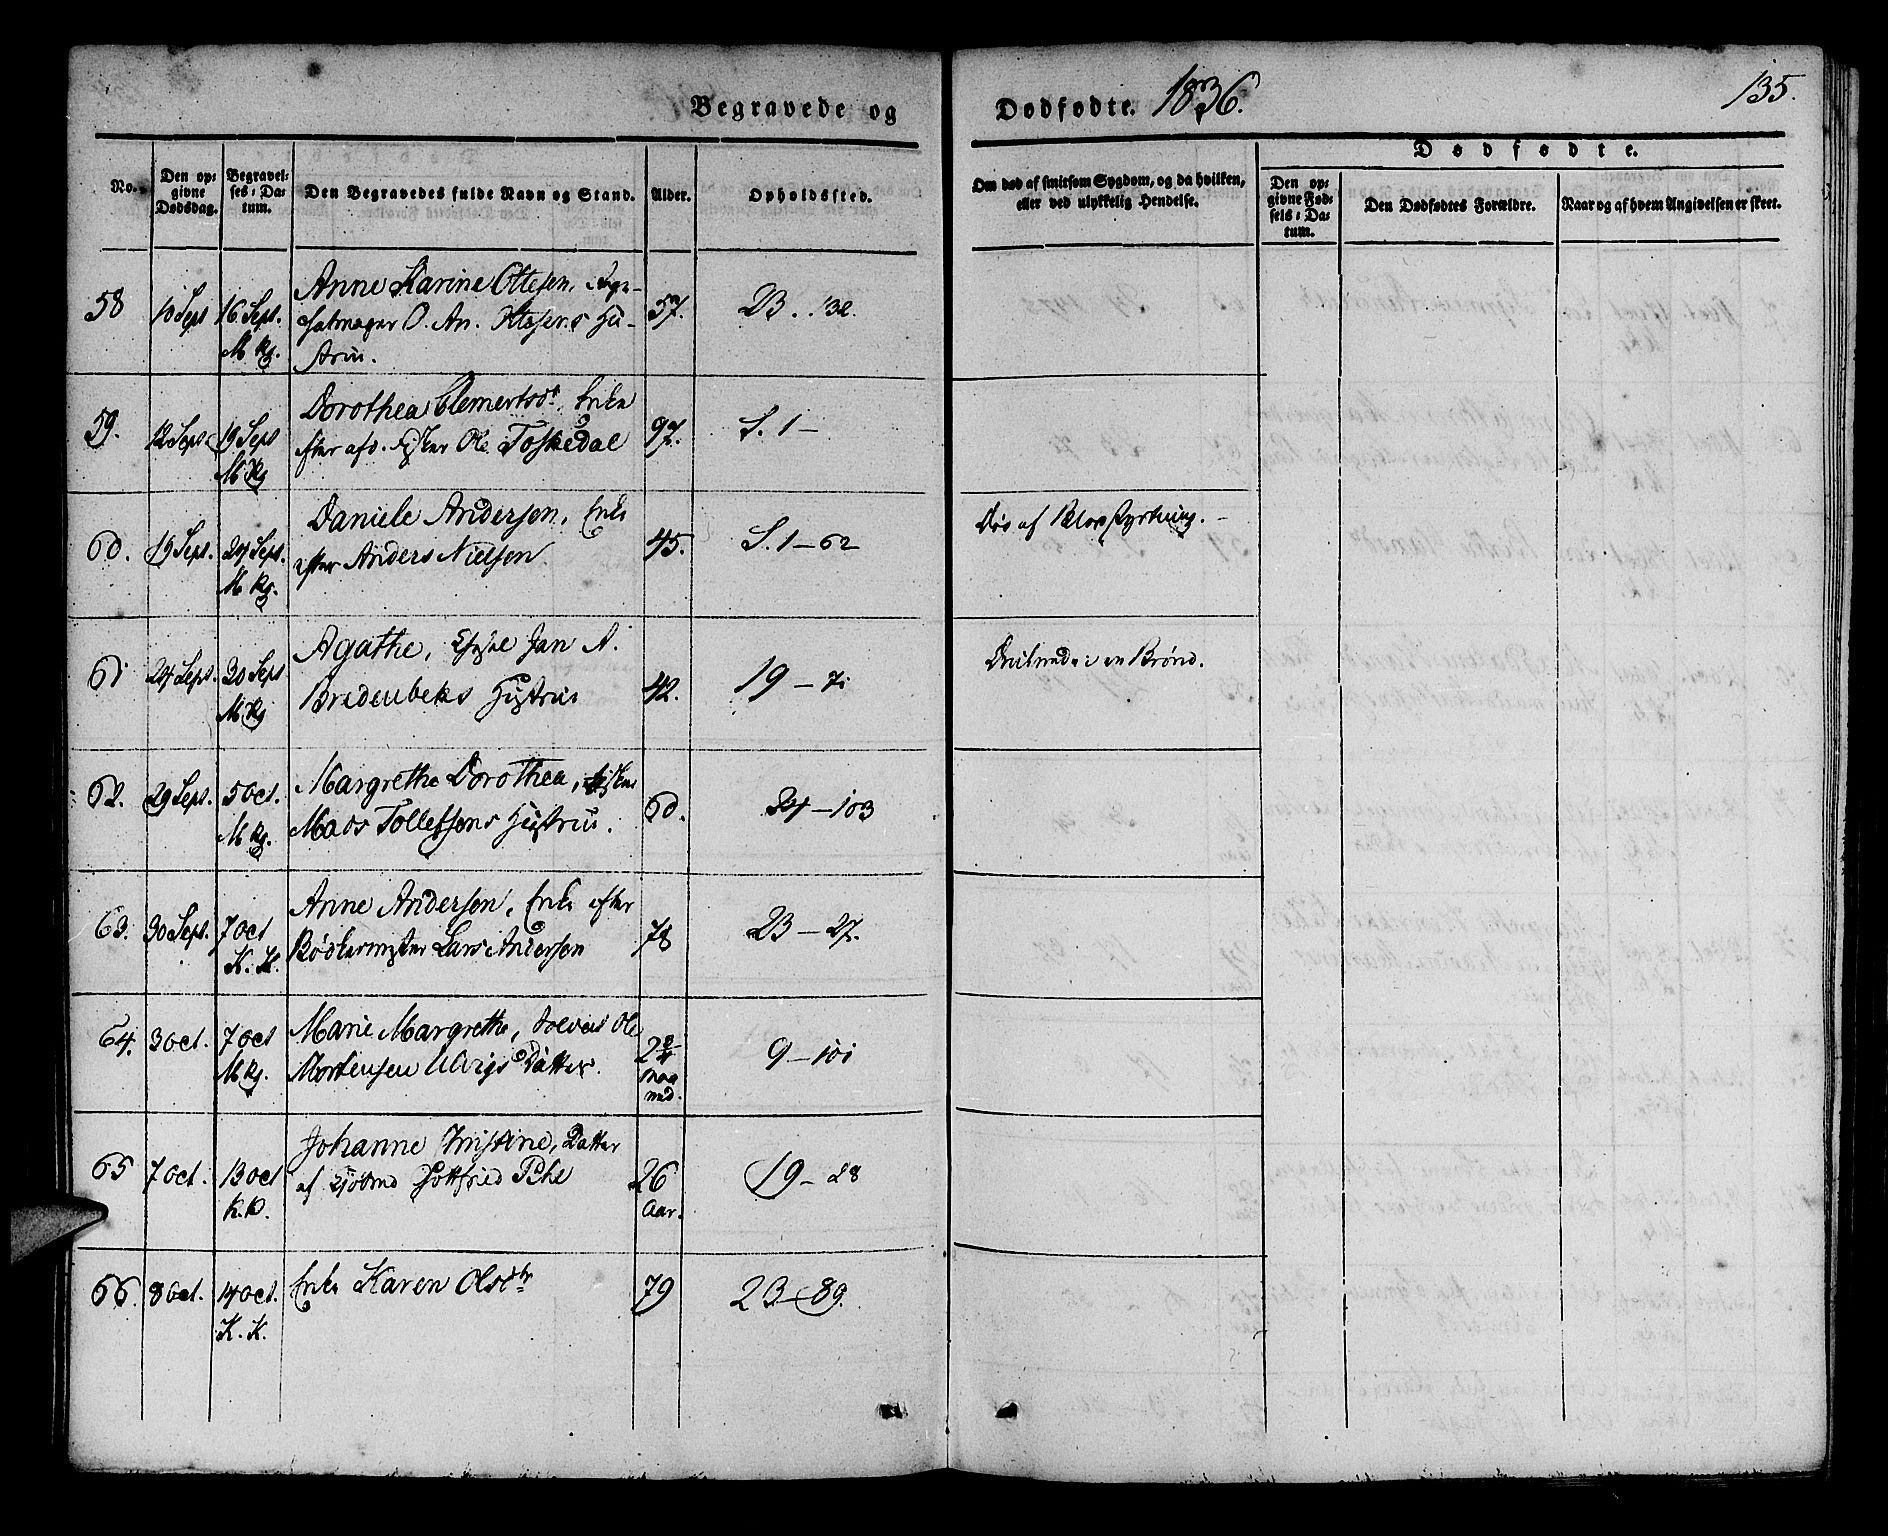 Begravede og Dødfødte. 1836. 135.
No.
Den opgivne Dødsdag.
Begravelses-Datum.
Den Begravedes fulde Navn og Stand.
Alder.
Opholdssted.
Om død af smitsom Sygdom, og da hvilken, eller ved ulykkelig Hendelse.
Dødfødte.
Den opgivne Fødsels-Datum.
Den Dødfødtes Forældre.
Naar og af hvem Angivelsen er skeet.
58 10 Sept 16 Sept. Anne Karine Ottesen, 57. 23. 132.
M Kg. O. An. Ottesens Hu-
strue.
59. 12 Sept 19 Sept Dorothea Clemertsdr. Enke 97. S. 1 –
M Kg efter afd. Fisker Ole Toskedal
60. 19 Sept. 24 Sept. Daniele Andersen, Enke 45. S. 1 – 62 Død af Blodstyrtning. –
M Kg. efter Anders Nielsen
61 24 Sept. 30 Sept Agathe, Jan A. 42. 19 – 71 Druknede i en Brønd.
M Kg Bredenbeks Hustrue
62. 29 Sept. 5 Oct. Margrethe Dorothea, 60. 24 – 103
M Kg. Mads Tollefsens Hustrue.
63. 30 Sept. 7 Oct Anne Andersen, Enke efter 78 23 – 27.
K. K. Bødkermester Lars Andersen
64. 3 Oct. 7 Oct Marie Margrethe, Ole 2 3/4 Maaned. 9 – 101
M Kg. Mortensen Datter.
65 7 Oct. 13 Oct Johanne Kristine, Datter 26 Aar. 19 – 28
K. K. af Gottfried Pihl
66. 8 Oct. 14 Oct. Enke Karen Olsdtr 79 23 – 89.
K. K.